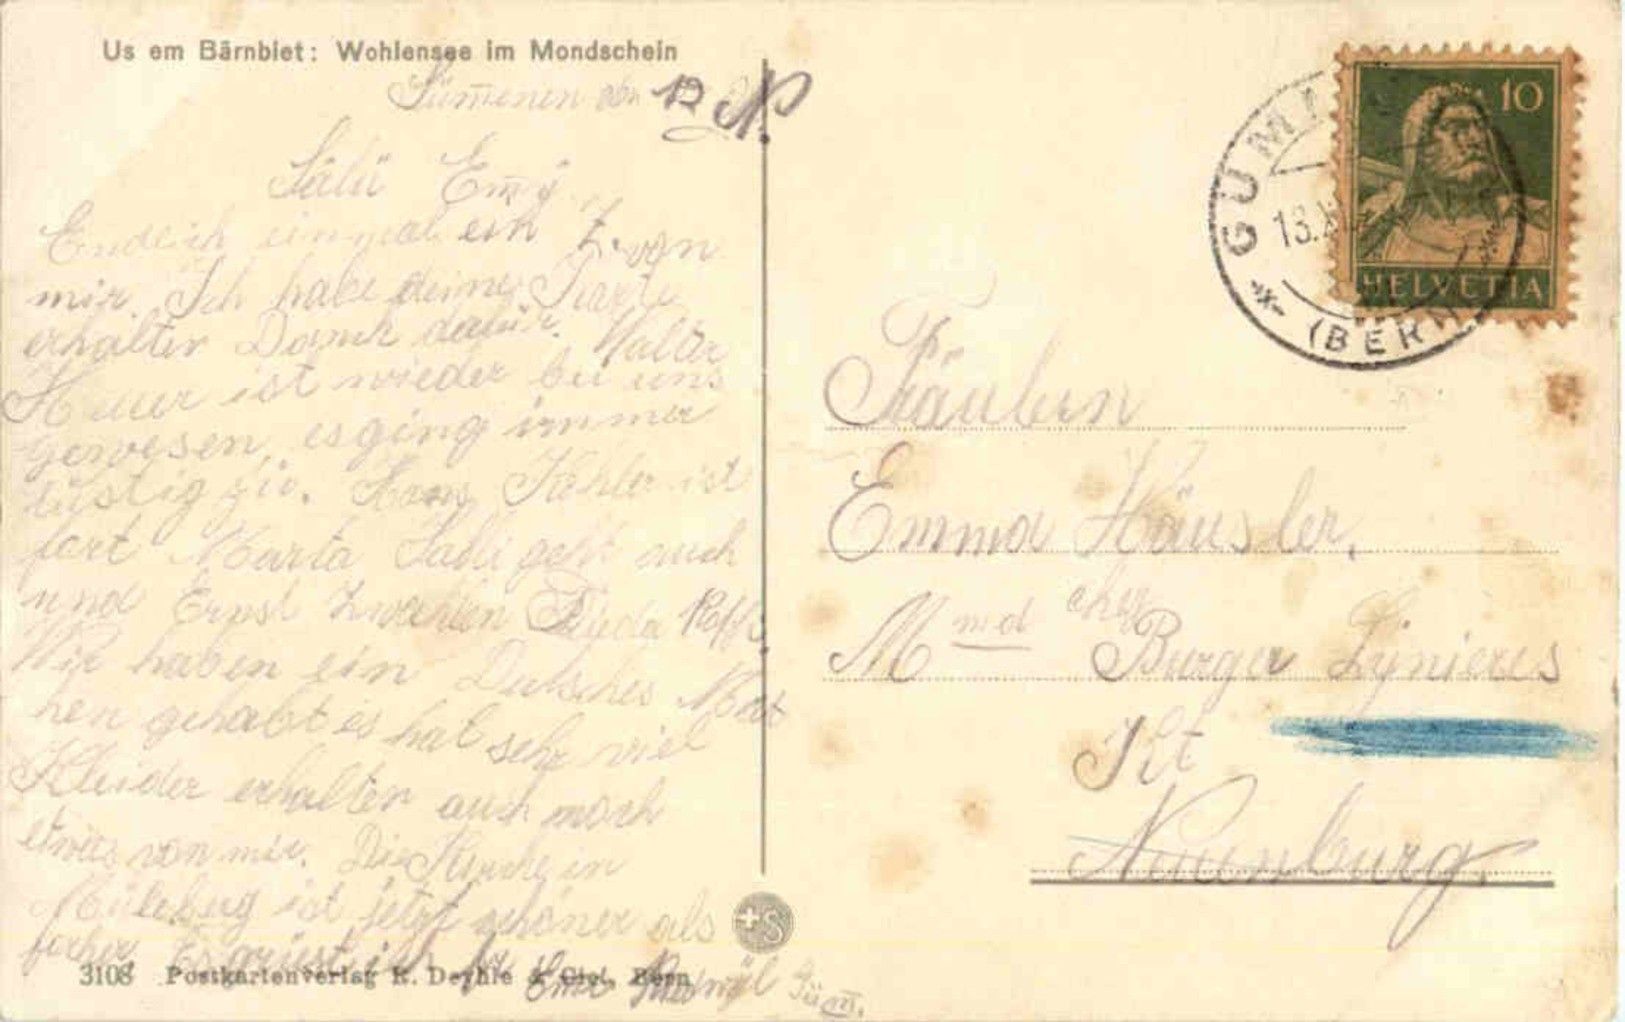 Us em Bärnbiet: Wohlensee im Mondschein
Sümenen den 12 N.
Salü Emy
Endlich einmal ein Z. von
mir. Ich habe deine Karte
erhalten Dank dafür. Walter
ist wieder bei uns
gewesen, es ging immer
lustig zu. Hans Kohler ist
fort Marta geht auch
und Ernst Zwahlen Frieda
Wir haben ein Deutsches Mät
hen gehabt es hat sehr viel
Kleider erhalten auch noch
etwas von mir. Die Kirche in
Müleberg ist jetzt schöner als
früher. Es grüsst
Güm.
3108 Postkartenverlag K. Deyhle & Cie., Bern
+S
HELVETIA
10
GÜM
13.X
(BERN
Fräulein
Emma Häusler,
Mmd chez Burger Lynieres
Kt
Neuenburg.